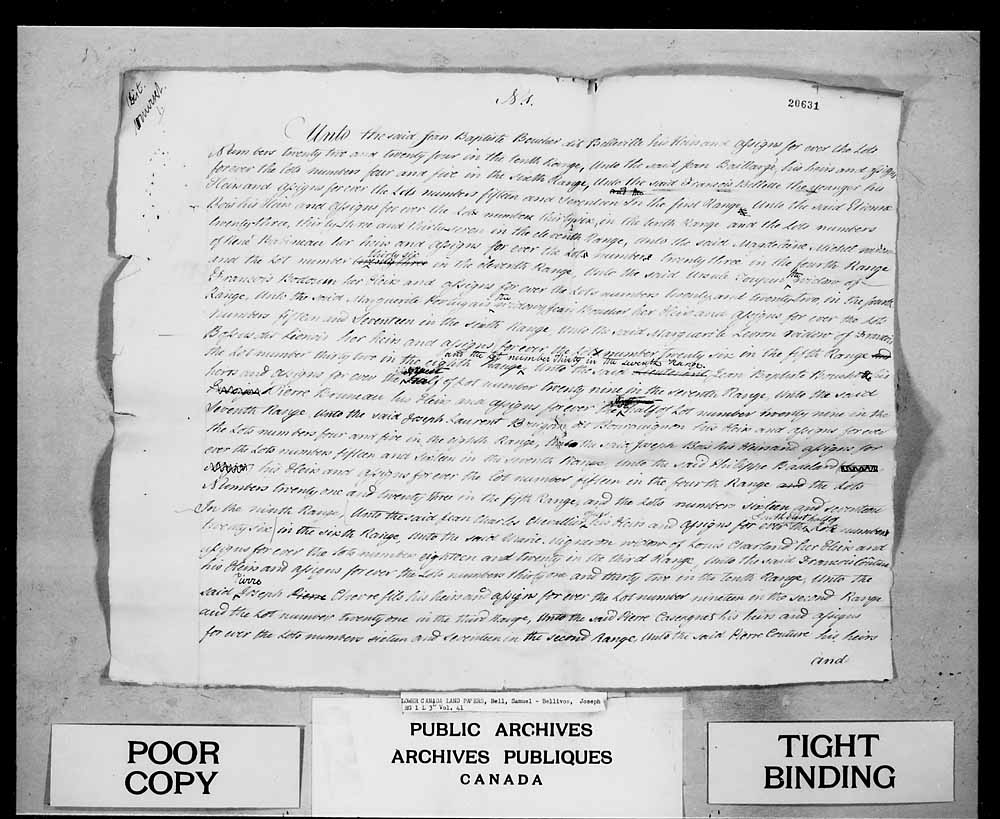 No. 1.
20631
Unto the said Jean Baptiste Boucher dit Belleville his Heirs and assigns for ever the Lots
Numbers twenty two and twenty four in the tenth Range, Unto the said Jean Baillargé, his heirs and assigns
forever the Lots numbers four and five in the Sixth Range, Unto the said Francois Billotte the younger his
Heirs and assigns forever the Lots numbers fifteen and Seventeen in the first Range, Unto the said Etienne
Bois his Heirs and assigns for ever the Lots numbers thirty six in the tenth Range and the Lots numbers
twenty three, thirty three and thirty seven in the eleventh Range, Unto the said Magdeleine Michel widow
of René Babineau her Heirs and assigns for ever the Lots numbers twenty three in the fourth Range
and the Lot number twenty three thirty six in the eleventh Range, Unto the said Ursule the widow of
Francois her Heirs and assigns for ever the Lots numbers twenty and twenty two, in the fourth
Range, Unto the said Marguerite the widow Jean Boucher her Heirs and assigns for ever the Lots
numbers fifteen and Seventeen in the Sixth Range Unto the said Marguerite widow of Francois
her Heirs and assigns for ever, the Lot number twenty six in the fifth Range
the Lot number thirty two in the eighth Range, and the Lot number thirty in the seventh Range. Unto the said Jean Baptiste Boucher his
heirs and assigns for ever the half of Lot number twenty nine in the seventh Range, Unto the said
Pierre Bonneau his Heirs and assigns forever the half of Lot number twenty nine in the
Seventh Range, Unto the said Joseph Laurent dit Bourguignon his Heirs and assigns for ever
the Lots numbers four and five in the eighth Range, Unto the said Joseph Bois his Heirs and assigns for
ever the Lots numbers fifteen and Sixteen in the Seventh Range, Unto the said Philippe Baseland
his Heirs and assigns for ever the Lot number fifteen in the fourth Range and the Lots
Numbers twenty one and twenty three in the fifth Range, and the Lots numbers sixteen and seventeen
In the ninth Range, Unto the said Jean Charles Chevallier his Heirs and assigns for ever the South East half of Lot number
twenty six in the Sixth Range, Unto the said Marie Vigneron widow of Louis Charland her Heirs and
assigns for ever the Lots number eighteen and twenty in the third Range, Unto the said Francois Couture
his Heirs and assigns forever the Lots numbers thirty one and thirty two in the tenth Range, Unto the
said Joseph Pierre fils his heirs and assigns for ever the Lot number nineteen in the second Range
and the Lot number twenty one in the third Range, Unto the said Pierre Casengnes his heirs and assigns
for ever the Lots numbers sixteen and Seventeen in the second Range, Unto the said Pierre Couture his heirs
and
LOWER CANADA LAND PAPERS, Bell, Samuel - Bellivoo, Joseph
RG 1 L 3" Vol. 41
POOR
COPY
PUBLIC ARCHIVES
ARCHIVES PUBLIQUES
CANADA
TIGHT
BINDING